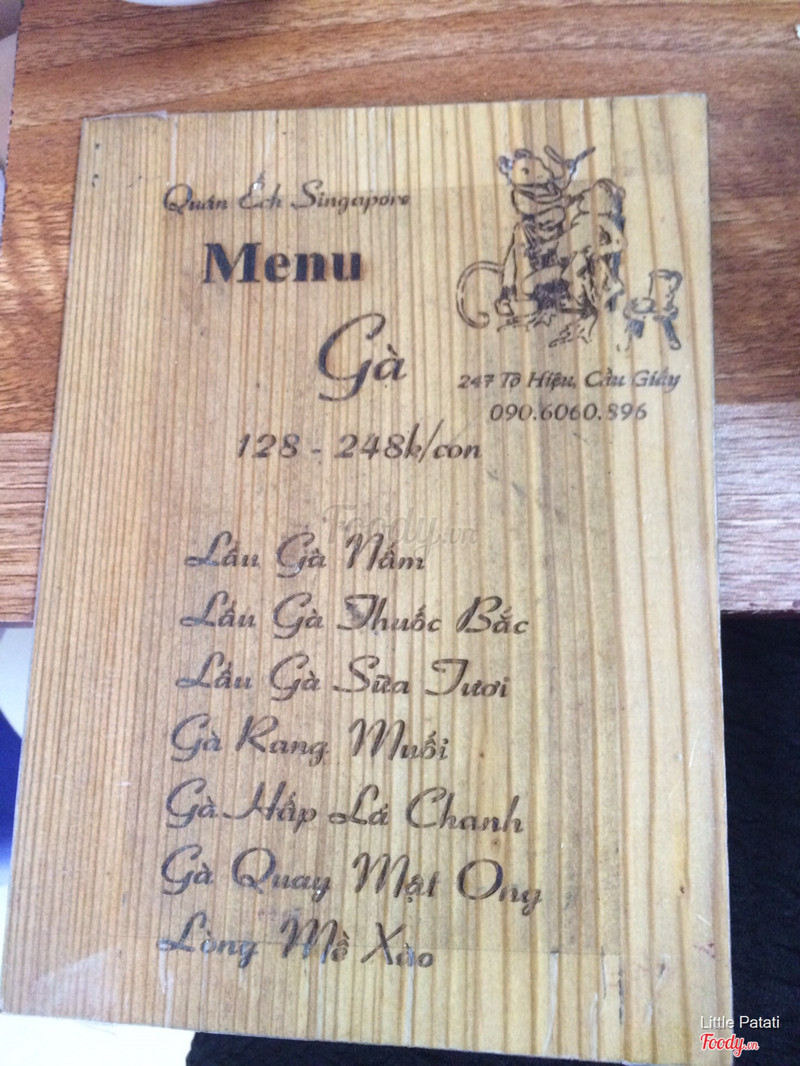 Quán Ếch Singapore
Menu
Gà
247 Tô Hiệu, Cầu Giấy
090.6060.896
128 - 248k/con
Foody.vn
Lẩu Gà Nấm
Lẩu Gà Thuốc Bắc
Lẩu Gà Sữa Tươi
Gà Rang Muối
Gà Hấp Lá Chanh
Gà Quay Mật Ong
Lòng Mề Xào
Little Patati
Foody.vn